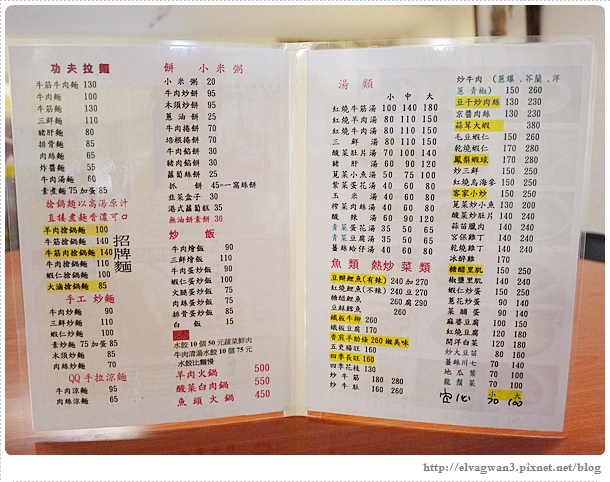 功夫拉麵
牛筋牛肉麵 130
牛肉麵 100
牛筋麵 130
三鮮麵 110
豬肝麵 80
排骨麵 85
肉絲麵 65
炸醬麵 55
牛肉湯麵 60
素煮麵 75 加蛋 85
搶鍋麵以高湯原汁
直接煮麵香濃可口
羊肉搶鍋麵 100
牛筋搶鍋麵 140
牛筋肉搶鍋麵 140
牛肉搶鍋麵 100
三鮮搶鍋麵 110
蝦仁搶鍋麵 100
大滷搶鍋麵 85
招牌麵
手工 炒麵
牛肉炒麵 90
三鮮炒麵 110
蝦仁炒麵 90
素炒麵 75 加蛋 85
木須炒麵 85
肉絲炒麵 70
QQ手拉涼麵
牛肉涼麵 95
肉絲涼麵 65
餅 小米粥
小米粥 20
牛肉炒餅 95
肉絲炒餅 90
木須炒餅 95
蔥油餅 25
牛肉捲餅 70
培根捲餅 70
牛肉餡餅 30
豬肉餡餅 30
蘿蔔絲餅 25
抓餅 45=一窩絲餅
韭菜盒子 30
港式蘿蔔糕 35
無油餅素餅 30
炒飯
牛肉燴飯 90
三鮮燴飯 110
牛肉蛋炒飯 90
蝦仁蛋炒飯 90
火腿蛋炒飯 70
肉絲蛋炒飯 70
排骨蛋炒飯 90
白飯 15
水餃 10個 50元 蔬菜鮮肉
牛肉清湯水餃 10個 75元
水餃比麵慢
羊肉火鍋 500
酸菜白肉鍋 550
魚頭火鍋 450
湯類
小 中 大
紅燒牛筋湯 100 140 180
紅燒羊肉湯 80 110 150
紅燒牛肉湯 80 110 150
三鮮湯 80 110 150
酸菜肚片湯 70 100 140
豬肝湯 60 90 120
莧菜小魚湯 50 75 100
紫菜蛋花湯 40 60 80
玉米湯 40 60 80
榨菜肉絲湯 40 60 80
酸辣湯 60 90 120
青菜蛋花湯 35 60 80
青菜豆腐湯 35 60 80
薑絲蛤仔湯 40 60 80
魚類 熱炒菜類
豆瓣鯉魚(有辣) 240 加 270
紅燒鯉魚(不辣) 240 豆 270
糖醋鯉魚 260 腐 290
豆鼓鱈魚 260
鐵板牛柳 260
鐵板豆腐 170
香煎羊肋條 260 嫩美味
五更腸旺 160
四季長旺 160
四季花枝 130
炒牛筋 180 280
炒牛肚 160 260
炒牛肉(蔥爆.芥蘭.洋
蔥 青椒) 150 260
豆干炒肉絲 130 230
京醬肉絲 130 230
蒜茸大蝦 380
毛豆蝦仁 150 260
乾燒蝦仁 170 280
鳳梨蝦球 170 280
炒三鮮 150 250
紅燒烏海參 150 250
客家小炒 150 250
莧菜炒小魚 130 230
酸菜炒肚片 140 240
蒜苗臘肉 140 240
宮保雞丁 140 240
乾燒雞丁 140 240
冰醉雞 170
糖醋里肌 150 250
椒鹽里肌 150 250
蝦仁炒蛋 140 250
蔥花炒蛋 90 140
菜脯蛋 90 140
麻婆豆腐 100 150
開洋白菜 120 180
炒大豆苗 80 120
薑絲川七 70 100
地瓜葉 70 100
龍鬚菜 70 100
空心 小 70 大 100
http://elvagwan3.pixnet.net/blog